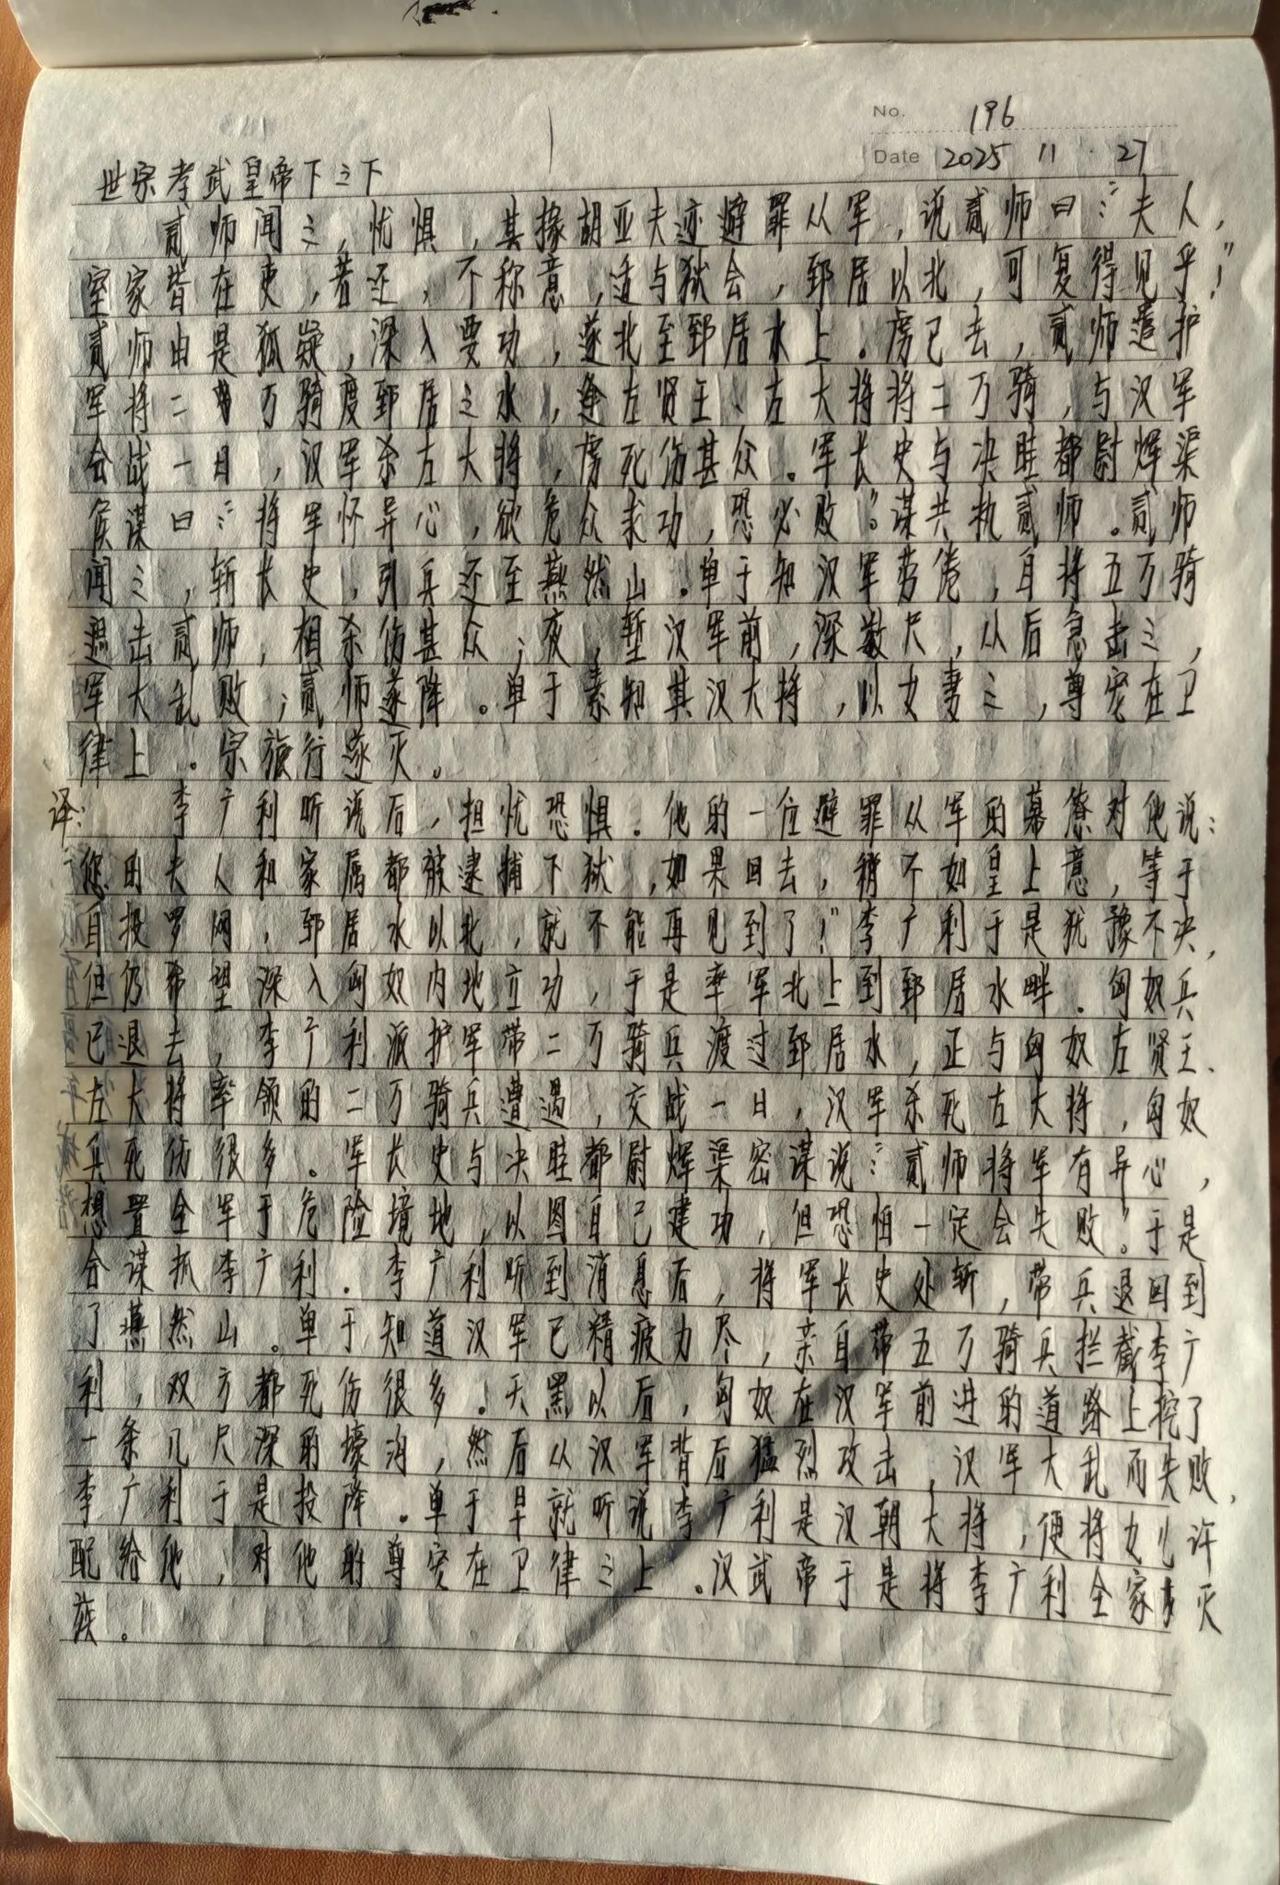 No. 196
Date 2025 11 27
世宗孝武皇帝下之下
贰师闻之，忧惧，其掾胡亚夫迹避罪从军，说贰师曰：“夫人，
室家皆在吏，若还，不称意，适与狱会，郅居以北，可复得见乎！”
贰师由是狐疑，深入要功，遂北至郅居水上。虏已去，贰师遣护
军将二万骑度郅居之水，逢左贤王、左大将将二万骑，与汉军
会战一日，汉军杀左大将，虏死伤甚众。军长史与决眭都尉辉渠
侯谋曰：“将军怀异心，欲危众求功，恐必败。”谋共执贰师。贰师
闻之，斩长史，引兵还至燕然山。单于知汉军劳倦，自将五万骑
遮击贰师，相杀伤甚众；夜，堑汉军前，深数尺，从后急击之，
军大乱败；贰师遂降。单于素知其汉大将，以女妻之，尊宠在卫
律上。宗族行遂灭。
译：李广利听说后，担忧恐惧。他的一位避罪从军的幕僚对他说：
您的夫人和家属都被逮捕下狱，如果回去，稍不如皇上意，等于
自投罗网，郅居水以北，就不能再见到了！”李广利于是犹豫不决，
但仍希望深入匈奴内地立功，于是率军北上到郅居水畔。匈奴兵
已退去，李广利派护军带二万骑兵渡过郅居水，正与匈奴左贤王、
左大将率领的二万骑兵遭遇，交战一日，汉军杀死左大将，匈奴
兵死伤很多。军长史与决眭都尉辉渠密谋说：“贰师将军有异心，
想置全军于危险境地，以图自己建功，但恐怕一定会失败。”于是
合谋抓李广利。李广利听到消息后，将军长史处斩，带兵退回到
了燕然山。单于知道汉军已精疲力尽，亲自带五万骑兵拦截李广
利，双方都死伤很多。天黑以后，匈奴在汉军前进的道路上挖了
一条几尺深的壕沟，然后从汉军背后猛烈攻击，汉军大乱而失败，
李广利于是投降。单于早就听说李广利是汉朝大将，便将女儿许
配给他，对他的尊宠在卫律之上。汉武帝于是将李广利全家灭
族。